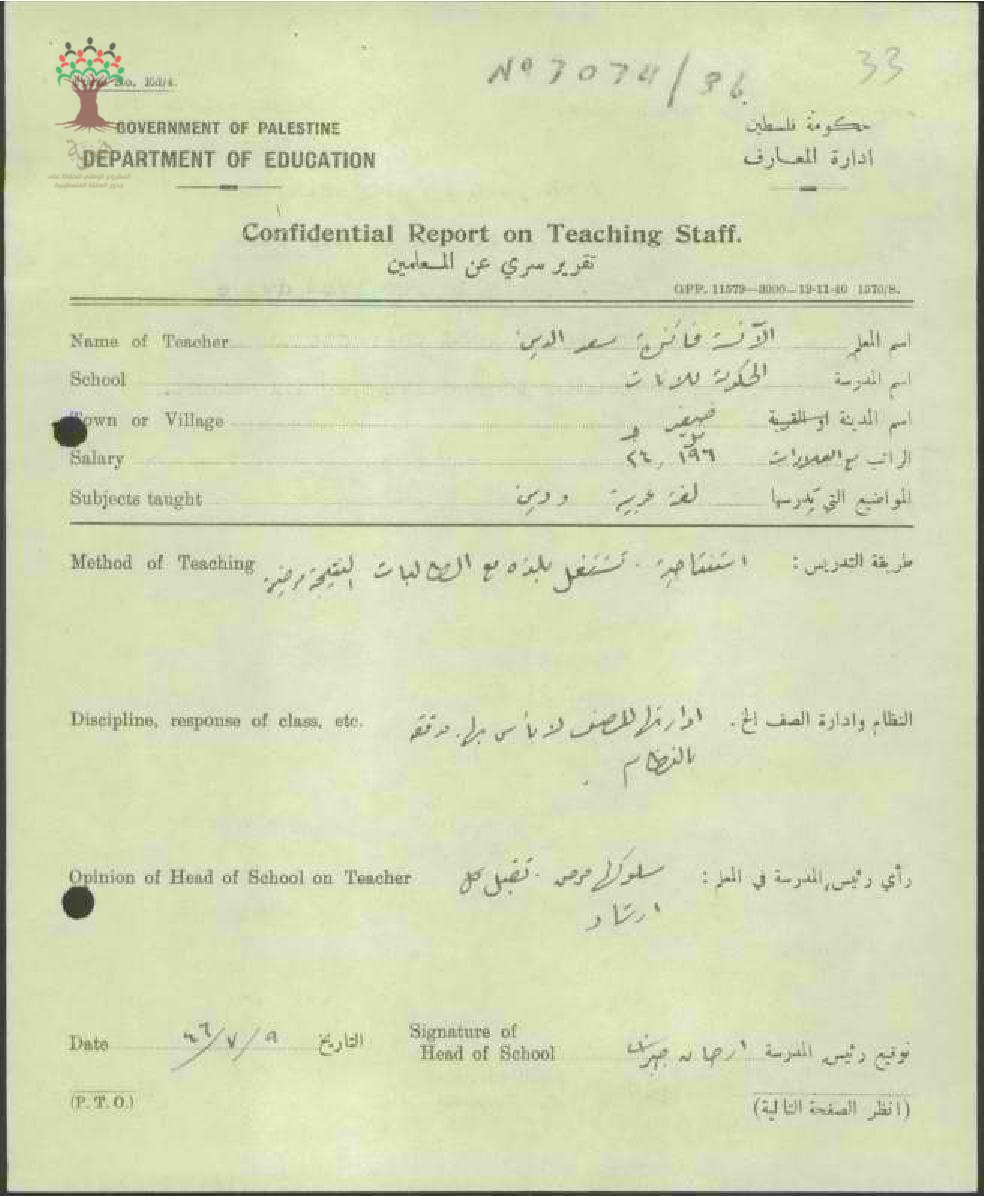 No 7074/36
33
No. 153/4.
GOVERNMENT OF PALESTINE
حكومة فلسطين
DEPARTMENT OF EDUCATION
ادارة المعارف
المشروع الوطني للحفاظ على
جذور العائلة الفلسطينية
Confidential Report on Teaching Staff.
تقرير سري عن المعلمين
GPP. 11579—3000—19-11-40 1570/8.
Name of Teacher الآنسة فائزة سعد الدين اسم المعلم
School الحكومة للاناث اسم المدرسة
Town or Village صفد اسم المدينة او القرية
Salary ٢٤, ١٩٦ الراتب مع العلاوات
Subjects taught لغة عربية ودين المواضيع التي يدرسها
Method of Teaching استنتاجية . تشتغل بلذه مع الطالبات النتيجة مرضية طريقة التدريس :
Discipline, response of class, etc. ادارتها للصف لا بأس بها. النظام وادارة الصف الخ.
بالنظام .
Opinion of Head of School on Teacher سلوكها مرض . تقبل كل رأي رئيس المدرسة في المعلم :
ارشاد
Date ٤٦/٧/٩ التاريخ
Signature of
Head of School توقيع رئيس المدرسة
(P. T. O.)
(انظر الصفحة التالية)